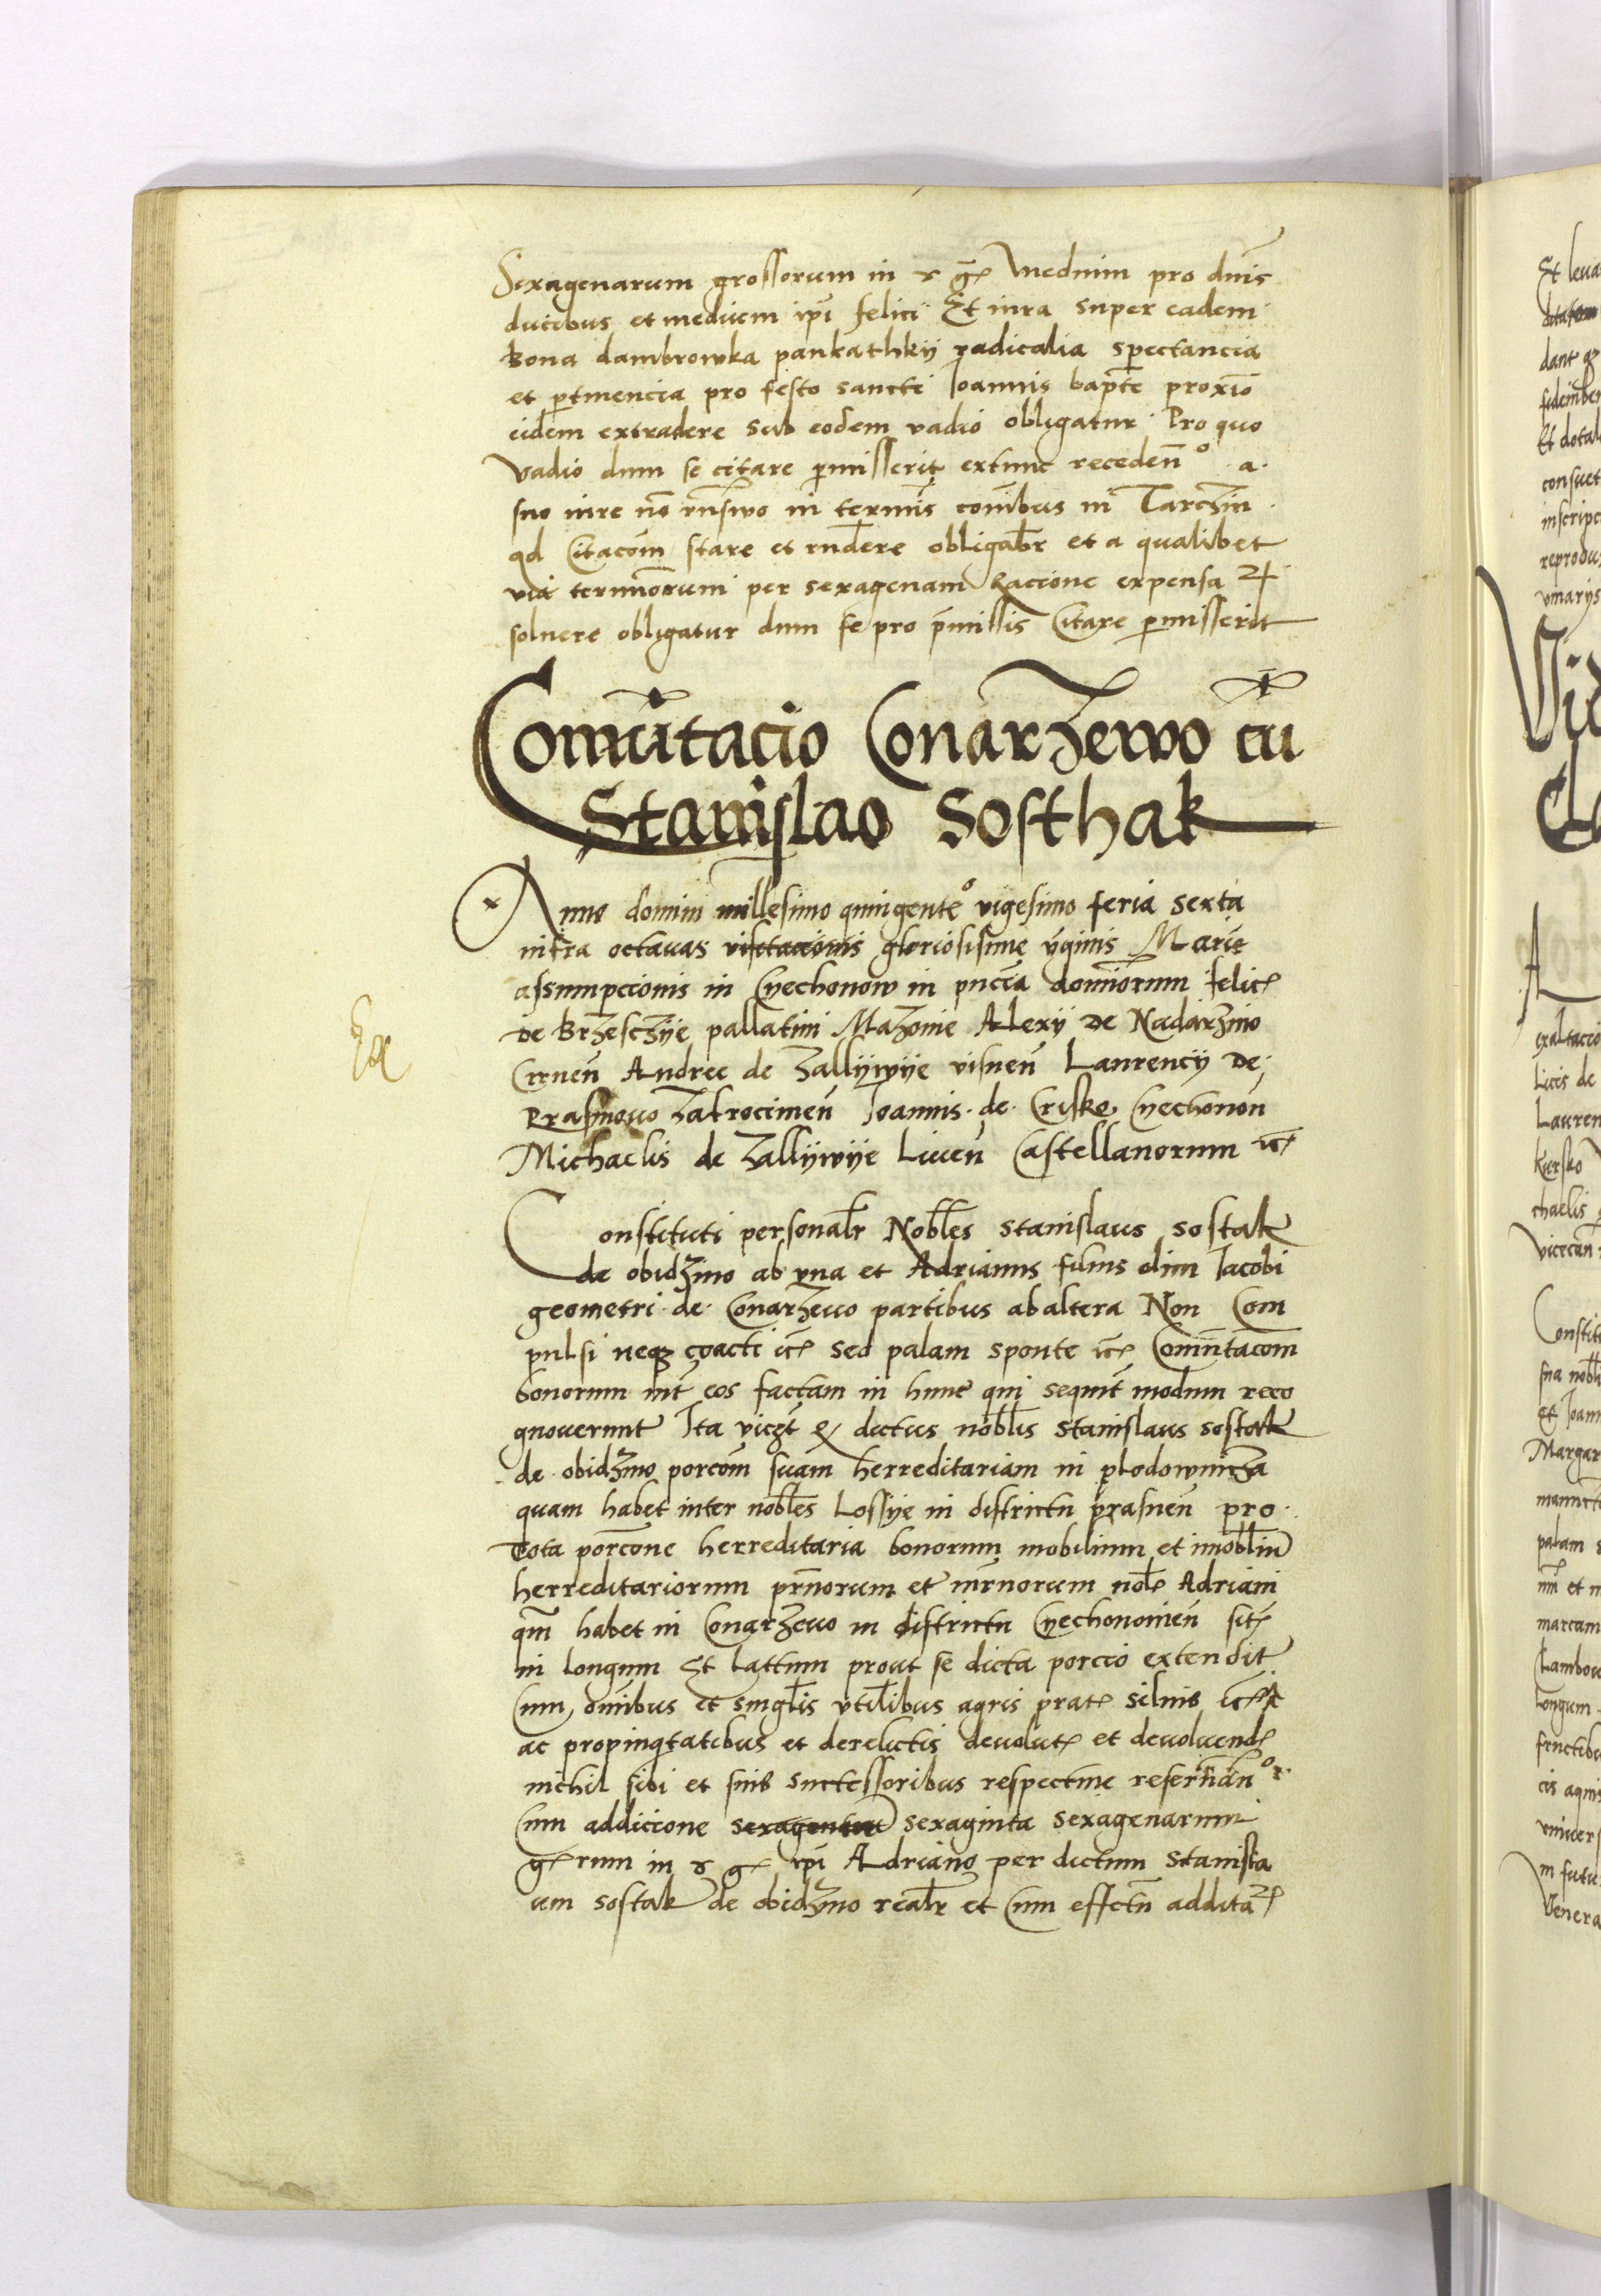 Sexagenarum grossorum in r gr̄ Medium pro dnis
ducibus et medium ipi felici Et iura super eadem
Bona dambrowka pankathkij radicalia spectancia
et ptinencia pro festo sancti Joannis bapte proxio
eidem extradere Sub eodem vadio obligatur Pro quo
vadio dum se citare pmisserit extunc recedenᵒ a
suo iure nō rnsivo in termis comibus in Tarczin
ad Citacom stare et rndere obligabr et a qualibet
via terminorum per sexagenam Racione expensaꝝ
soluere obligatur dum se pro pmissis Citare pmisserit
Comutacio Conarzewo cū
Stanislao Sosthak
Anno domini millesimo quingenteᵒ vigesimo feria sexta
infra octauas visitacionis gloriosissime vginis Marie
assumpccionis in Cyechonow in pncia dominorum felic
de Brzesczije pallatini Mazouie Alexij de Nadarzino
Cirnen̄ Andree de Zallijwije visnen̄ Laurencij de
Prasmouo Zakrocimen̄ Joannis de Criske Cyechonon̄
Michaelis de Zallijwije Liuen̄ Castellanorum ic
Constituti personalr Nobles Stanislaus Sostak
de obidzino ab vna et Adrianus filius olim Jacobi
geometri de Conarzeuo partibus ab altera Non Com
pulsi neqꝫ coacti ic sed palam sponte ic Comutacom
bonorum int eos factam in hunc qui sequit modum reco
gnouerunt Ita vicꝫt ꝙ dictus nobilis Stanislaus Sostak
de obidzino porcom suam herreditariam in plodownicza
quam habet inter nobles Lossije in districtu prasnen̄ pro
Tota porcone herreditaria bonorum mobilium et imobliū
herreditariorum prnorum et mrnorum nobl Adriani
qm habet in Conarzeuo in districtu Cyechonomien̄ sit
in longum Et lattum prout se dicta porcio extendit
Cum omibus et singlis vtilibus agris prat siluis ic
ac propinqtatibus et derelictis deuolut et deuoluend
nichil sibi et suis successoribus respectiue reseruanᵒ
Cum addicione sexagenta sexaginta sexagenarum
gr rum in r gr ipi Adriano per dictum Stanisla
um Sostak de obidzino realr et Cum effectu additaꝝ
Ex